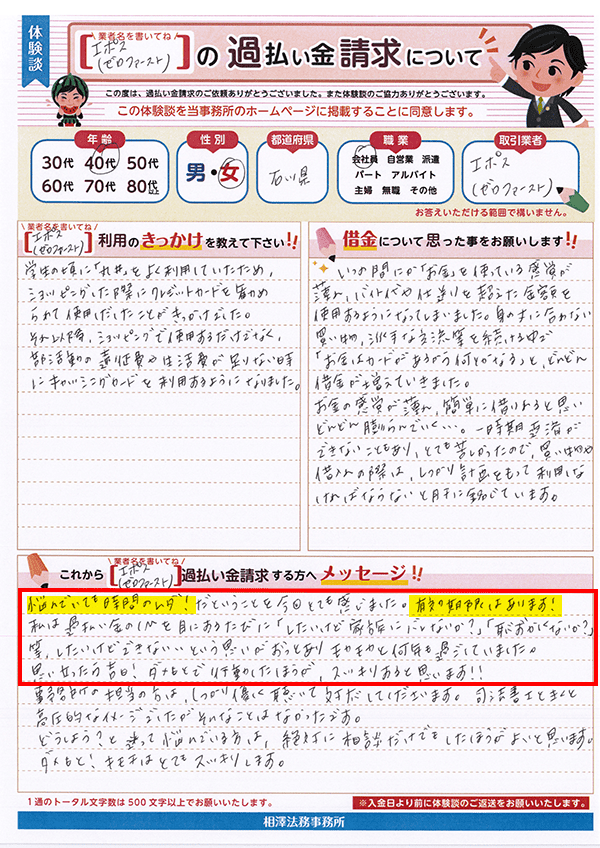 体験談
業者名を書いてね
[エポス (ゼロファースト)] の 過払い金請求について
この度は、過払い金請求のご依頼ありがとうございました。また体験談のご協力ありがとうございます。
この体験談を当事務所のホームページに掲載することに同意します。
年齢
30代 40代 50代
60代 70代 80代以上
性別
男・女
都道府県
石川県
職業
会社員 自営業 派遣
パート アルバイト
主婦 無職 その他
取引業者
エポス
(ゼロファースト)
お答えいただける範囲で構いません。
業者名を書いてね
[エポス (ゼロファースト)] 利用のきっかけを教えて下さい!!
学生の頃に「丸井」をよく利用していたため、
ショッピングした際にクレジットカードを勧め
られて使用しだしたことがきっかけでした。
それ以降、ショッピングで使用するだけでなく、
部活動の遠征費や生活費が足りない時
にキャッシングカードを利用するようになりました。
借金について思った事をお願いします!!
いつの間にか「お金」を使っている感覚が
薄れ、バイト代や仕送りを超えた金額を
使用するようになってしまいました。身の丈に合わない
買い物、派手な交流等を続ける中で
「お金はカードがあるから何とかなる」と、どんどん
借金が増えていきました。
お金の感覚が薄れ、簡単に借りれると思い
どんどん膨らんでいく…。一時期返済が
できないこともあり、とても苦しかったので、買い物や
借入れの際は、しっかり計画をもって利用しな
ければならないと肝に銘じています。
業者名を書いてね
これから [エポス (ゼロファースト)] 過払い金請求する方へメッセージ!!
悩んでいても時間のムダ!だということを今回とても感じました。有効期限はあります!
私は過払い金のCMを目にするたびに「したいけど家族にバレないか?」「恥をかくないか?」
等、したいけどできないという思いがずっとあり、モヤモヤと何年も過ごしていました。
思い立ったら吉日!ダメもとで行動したほうが、スッキリすると思います!!
事務所の担当の方は、しっかり優しく聴いて対応してくださいます。司法書士ときくと
高圧的なイメージでしたがそんなことはなかったです。
どうしよう?と迷って悩んでいる方は、絶対に相談だけでもしたほうがよいと思います。
ダメもと!キモチはとてもスッキリします。
1通のトータル文字数は500文字以上でお願いいたします。
※入金日より前に体験談のご返送をお願いいたします。
相澤法務事務所